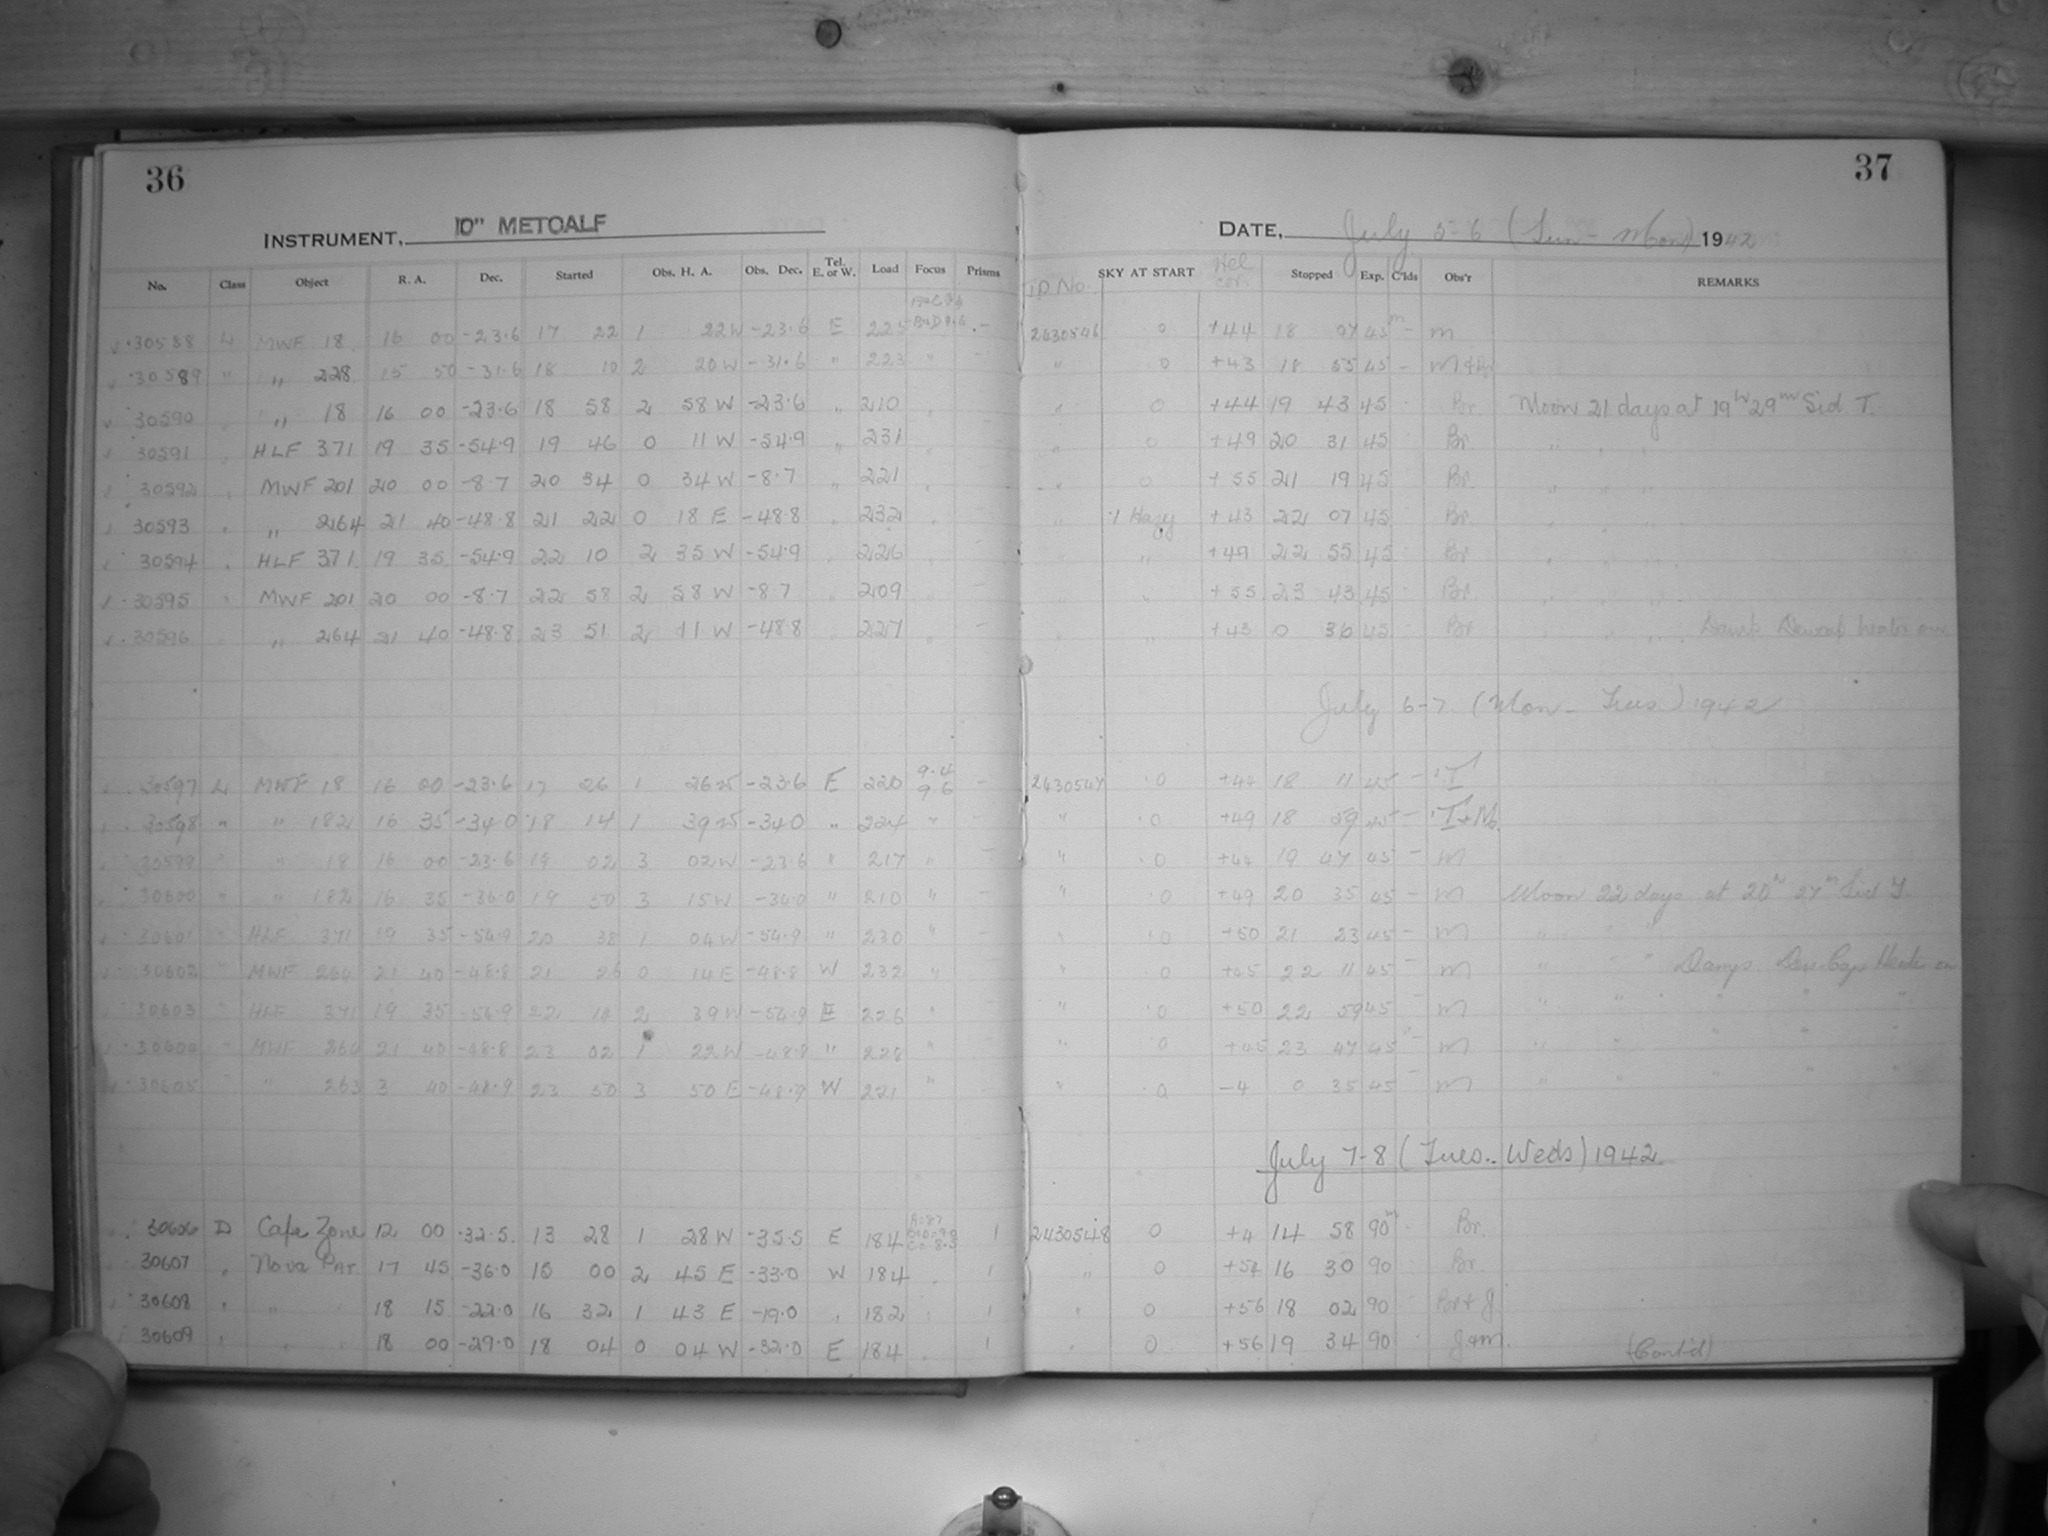 36
INSTRUMENT, 10" METCALF
No. Class Object R. A. Dec. Started Obs. H. A. Obs. Dec. Tel. E. or W. Load Focus Prisms
30588 L MWF 18 16 00 -23.6 17 22 1 22W -23.6 E 225 -
30589 " " 228 15 50 -31.6 18 10 2 20W -31.6 " 223 "
30590 " 18 16 00 -23.6 18 58 2 58 W -23.6 " 210
30591 HLF 371 19 35 -54.9 19 46 0 11 W -54.9 " 231
30592 MWF 201 20 00 -8.7 20 34 0 34 W -8.7 " 221
30593 " 264 21 40 -48.8 21 22 0 18 E -48.8 " 232
30594 HLF 371 19 35 -54.9 22 10 2 35 W -54.9 " 226
30595 MWF 201 20 00 -8.7 22 58 2 58 W -8.7 " 209
30596 " 264 21 40 -48.8 23 51 2 11 W -48.8 " 227
30597 L MWF 18 16 00 -23.6 17 26 1 26W -23.6 E 220 9.4 9.6 -
30598 " " 182 16 35 -34.0 18 14 1 39W -34.0 " 224 "
30599 " " 18 16 00 -23.6 19 02 3 02W -23.6 " 217 "
30600 " " 182 16 35 -34.0 19 50 3 15W -34.0 " 210 "
30601 " HLF 371 19 35 -54.9 20 38 1 04W -54.9 " 230 "
30602 " MWF 264 21 40 -48.8 21 26 0 14E -48.8 W 232 "
30603 " HLF 371 19 35 -54.9 22 14 2 39W -54.9 E 226 "
30604 " MWF 264 21 40 -48.8 23 02 1 22W -48.8 " 228 "
30605 " " 263 3 40 -48.9 23 50 3 50 E -48.9 W 221 "
30606 D Cape Zone 12 00 -32.5 13 28 1 28 W -35.5 E 184 1
30607 " Nova Pat 17 45 -36.0 15 00 2 45 E -33.0 W 184 1
30608 " " 18 15 -22.0 16 32 1 43 E -19.0 " 182 1
30609 " " 18 00 -29.0 18 04 0 04 W -32.0 E 184 1
37
DATE, July 5-6 (Sun - Mon) 1942
J.D. No. SKY AT START Hel cor. Stopped Exp. C'lds Obs'r REMARKS
2430546 0 +44 18 07 45m - M
" 0 +43 18 55 45 -
" 0 +44 19 43 45 Br. Moon 21 days at 19h 29m Sid T.
" 0 +49 20 31 45 Br. " " "
" 0 +55 21 19 45 Br. " " "
" Hazy +43 22 07 45 Br. " " "
" " +49 22 55 45 Br. " " "
" " +55 23 43 45 Br. " " "
" " +43 0 36 45 Br. " " " Damp Dewcap heater on
July 6-7 (Mon - Tues) 1942
2430547 0 +44 18 11 45 -
" 0 +49 18 59 45 -
" 0 +44 19 47 45 - M
" 0 +49 20 35 45 - M Moon 22 days at 20h 27m Sid T.
" 0 +50 21 23 45 - M " " "
" 0 +45 22 11 45 - M " " " Damp Dew-Cap Heater on
" 0 +50 22 59 45 - M " " " "
" 0 +45 23 47 45 - M " " " "
" 0 -4 0 35 45 - M " " " "
July 7-8 (Tues.-Weds) 1942
2430548 0 +4 14 58 90m Br.
" 0 +54 16 30 90 Br.
" 0 +56 18 02 90 Br + J.
" 0 +56 19 34 90 J&M. (Cont'd)